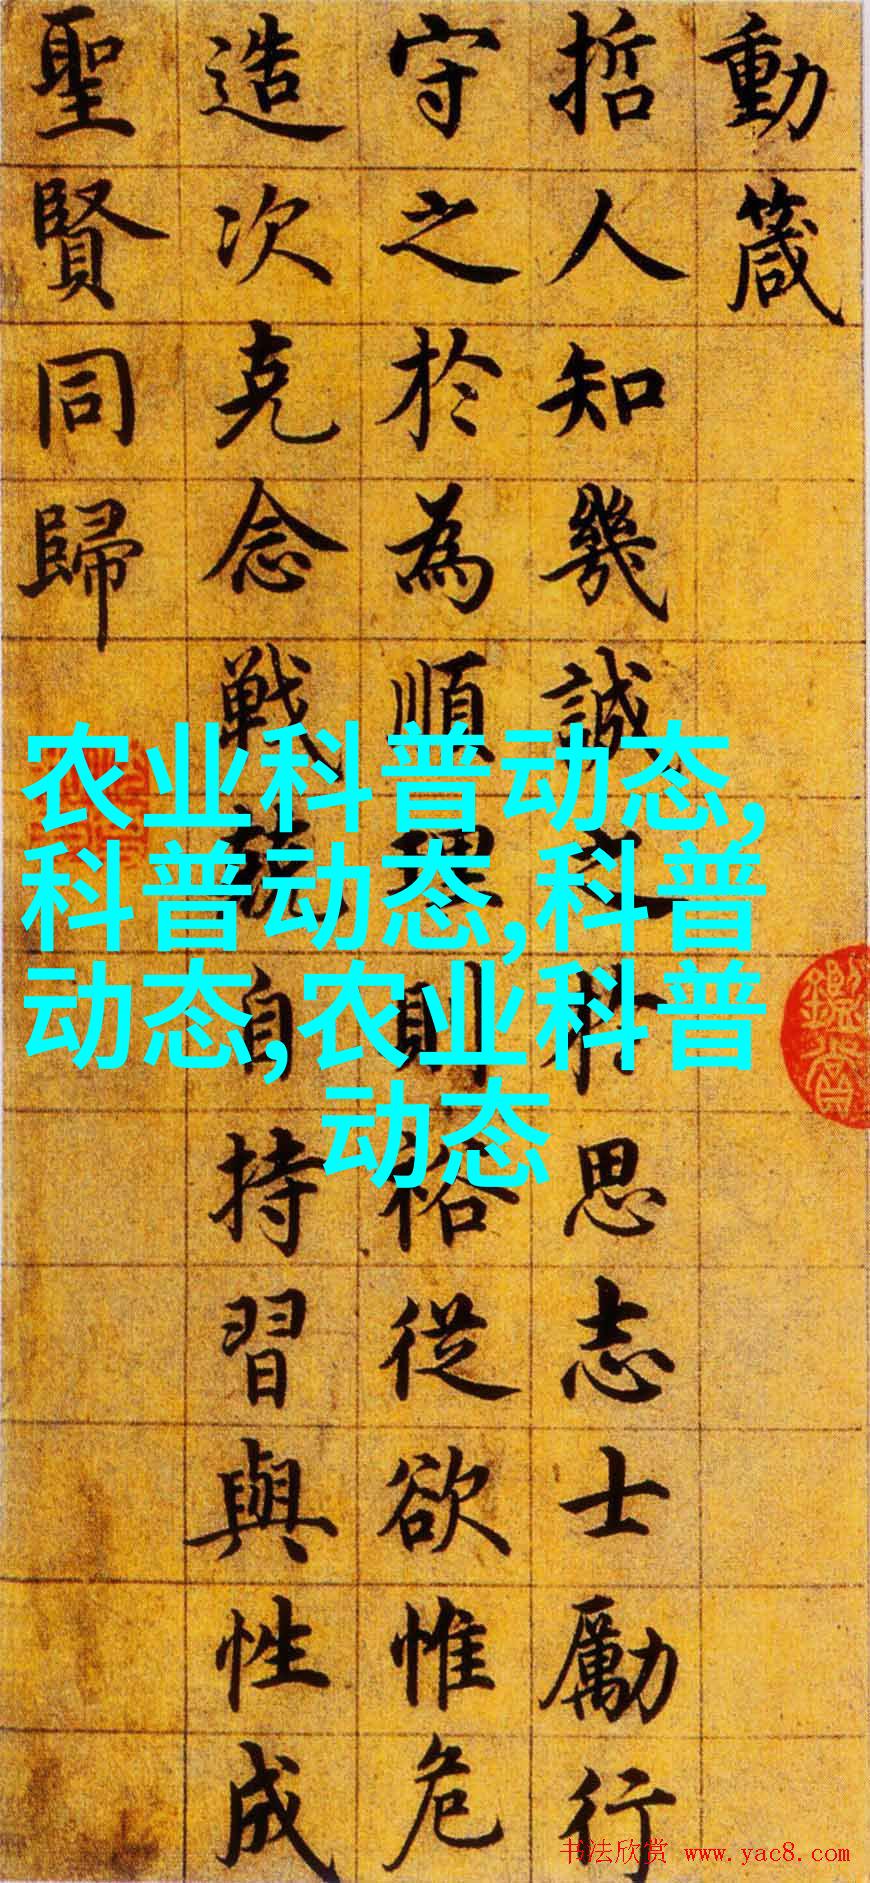 動箴
哲人知幾誠之於思志士勵行
守之於為順理則裕從欲惟危
造次克念戰兢自持習與性成
聖賢同歸
农业科普动态,
科普动态,科普
动态,农业科普
动态
书法欣赏 www.yac8.com